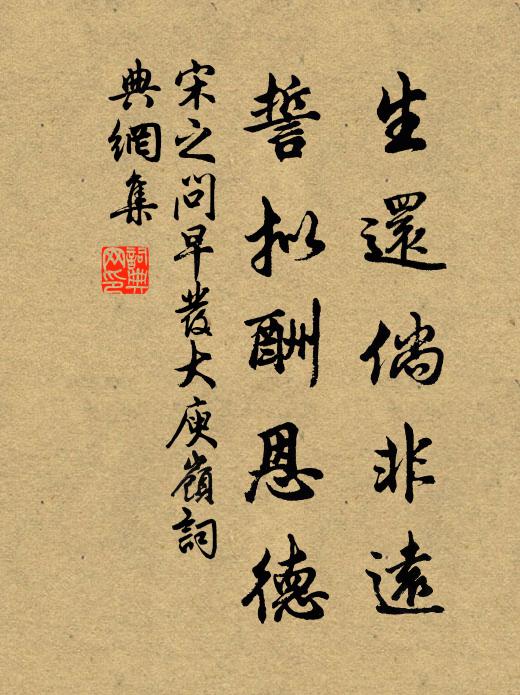 生還倘非遠
誓拟酬恩德
宋之问早發大庾嶺詞
典網集
詞典网印